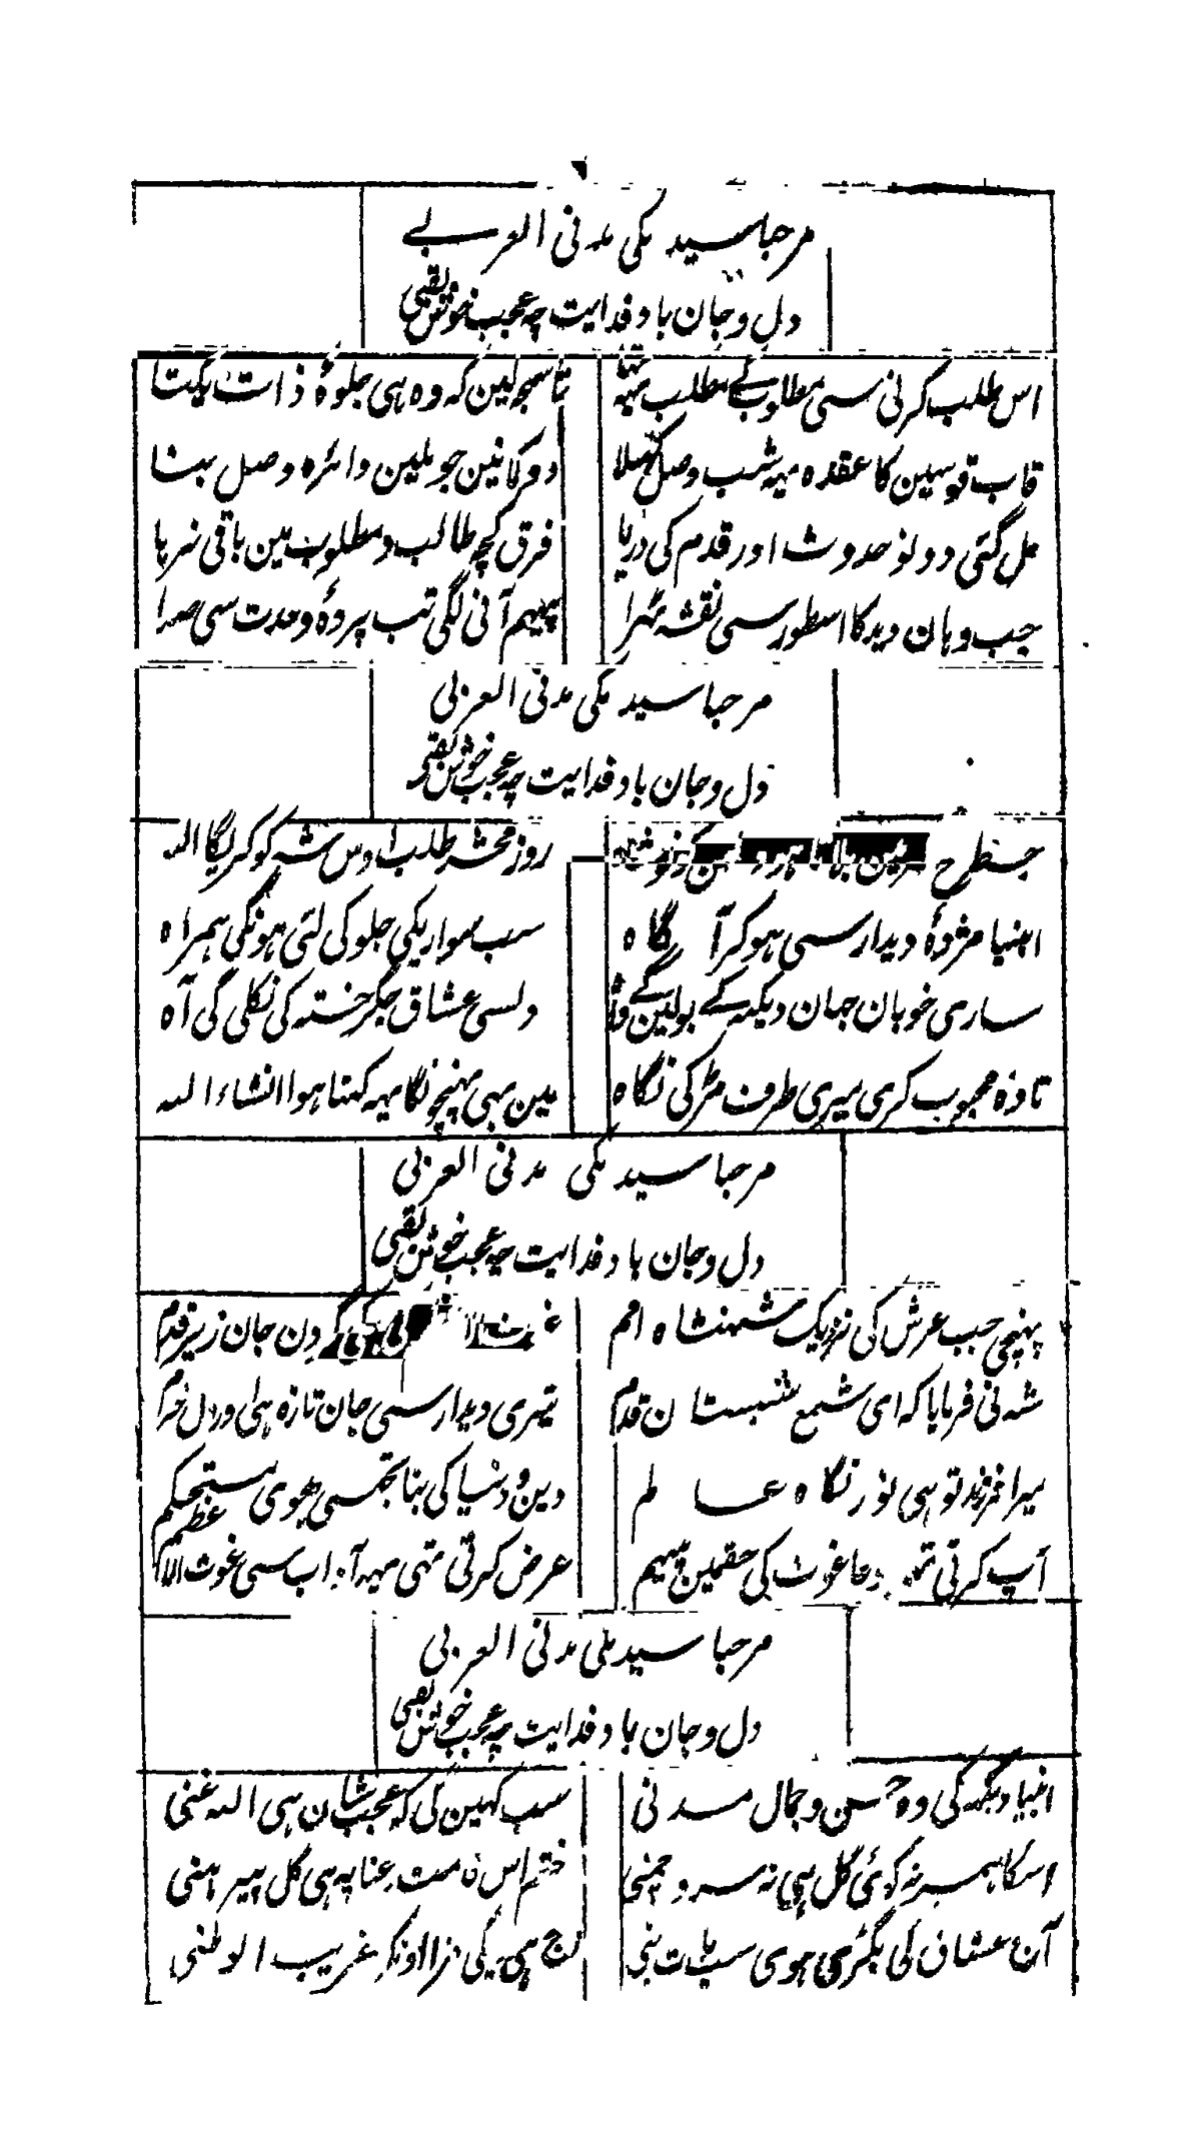 مرحبا سید مکی مدنی العربے
دل و جان باد فدایت چه عجب خوش لقبی
اس طلب کرنی سی مطلوب کے مطلب یہہ تہا
تا سمجہ لین کہ وہ ہی جلوۂ ذات یکتا
قاب قوسین کا عقدہ یہہ شب وصل کہلا
دو کمانین جو ملین دائرہ وصل بنا
مل گئی دو نو حدوث اور قدم کی دریا
فرق کچہ طالب و مطلوب مین باقی نرہا
جب وہان دید کا اسطور سی نقشہ ٹہرا
پیہم آنی لگی تب پردۂ وحدت سی صدا
مرحبا سید مکی مدنی العربی
دل و جان باد فدایت چه عجب خوش لقبی
جسطرح
روز محشر طلب اوس شہ کو کریگا اللہ
انبیا مژدۂ دیدار سی ہو کر آگاہ
سب سواریکی جلو کی لئی ہونگی ہمراہ
ساری خوبان جہان دیکہہ کے بولین گے واہ
دلسی عشاق جگر خستہ کی نکلی گی آہ
تا وہ محبوب کری میری طرف مڑ کی نگاہ
مین بہی پہنچونگا یہہ کہتا ہوا انشاء اللہ
مرحبا سید مکی مدنی العربی
دل و جان باد فدایت چه عجب خوش لقبی
پہنچی جب عرش کی نزدیک شہنشاہ امم
کی گردن جان زیر قدم
شہ نی فرمایا کہ ای شمع شبستان قدم
تیری دیدار سی جان تازہ ہی و دل خرم
میرا فرزند تو ہی نور نگاہ عالم
دین و دنیا کی بنا تجہسی ہوی مستحکم
آپ کرتی تہی دعا غوث کی حقمین پیہم
عرض کرتی تہی یہہ آداب سی غوث الاعظم
مرحبا سید مکی مدنی العربی
دل و جان باد فدایت چه عجب خوش لقبی
انبیا دیکہہ کی وہ حسن و جمال مدنی
سب کہین گی کہ عجب شان ہی اللہ غنی
اسکا ہمسر نہ کوئی گل ہی نہ سرو چمنی
ختم اس قامت رعنا پہ ہی گل پیرہنی
آن عشاق کی بگڑی ہوی سب بات بنی
کی نرالا ونکی غریب الوطنی